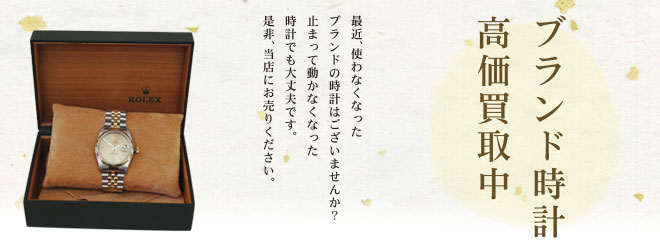 ブランド時計
高価買取中
最近、使わなくなった
ブランドの時計はございませんか？
止まって動かなくなった
時計でも大丈夫です。
是非、当店にお売りください。
ROLEX